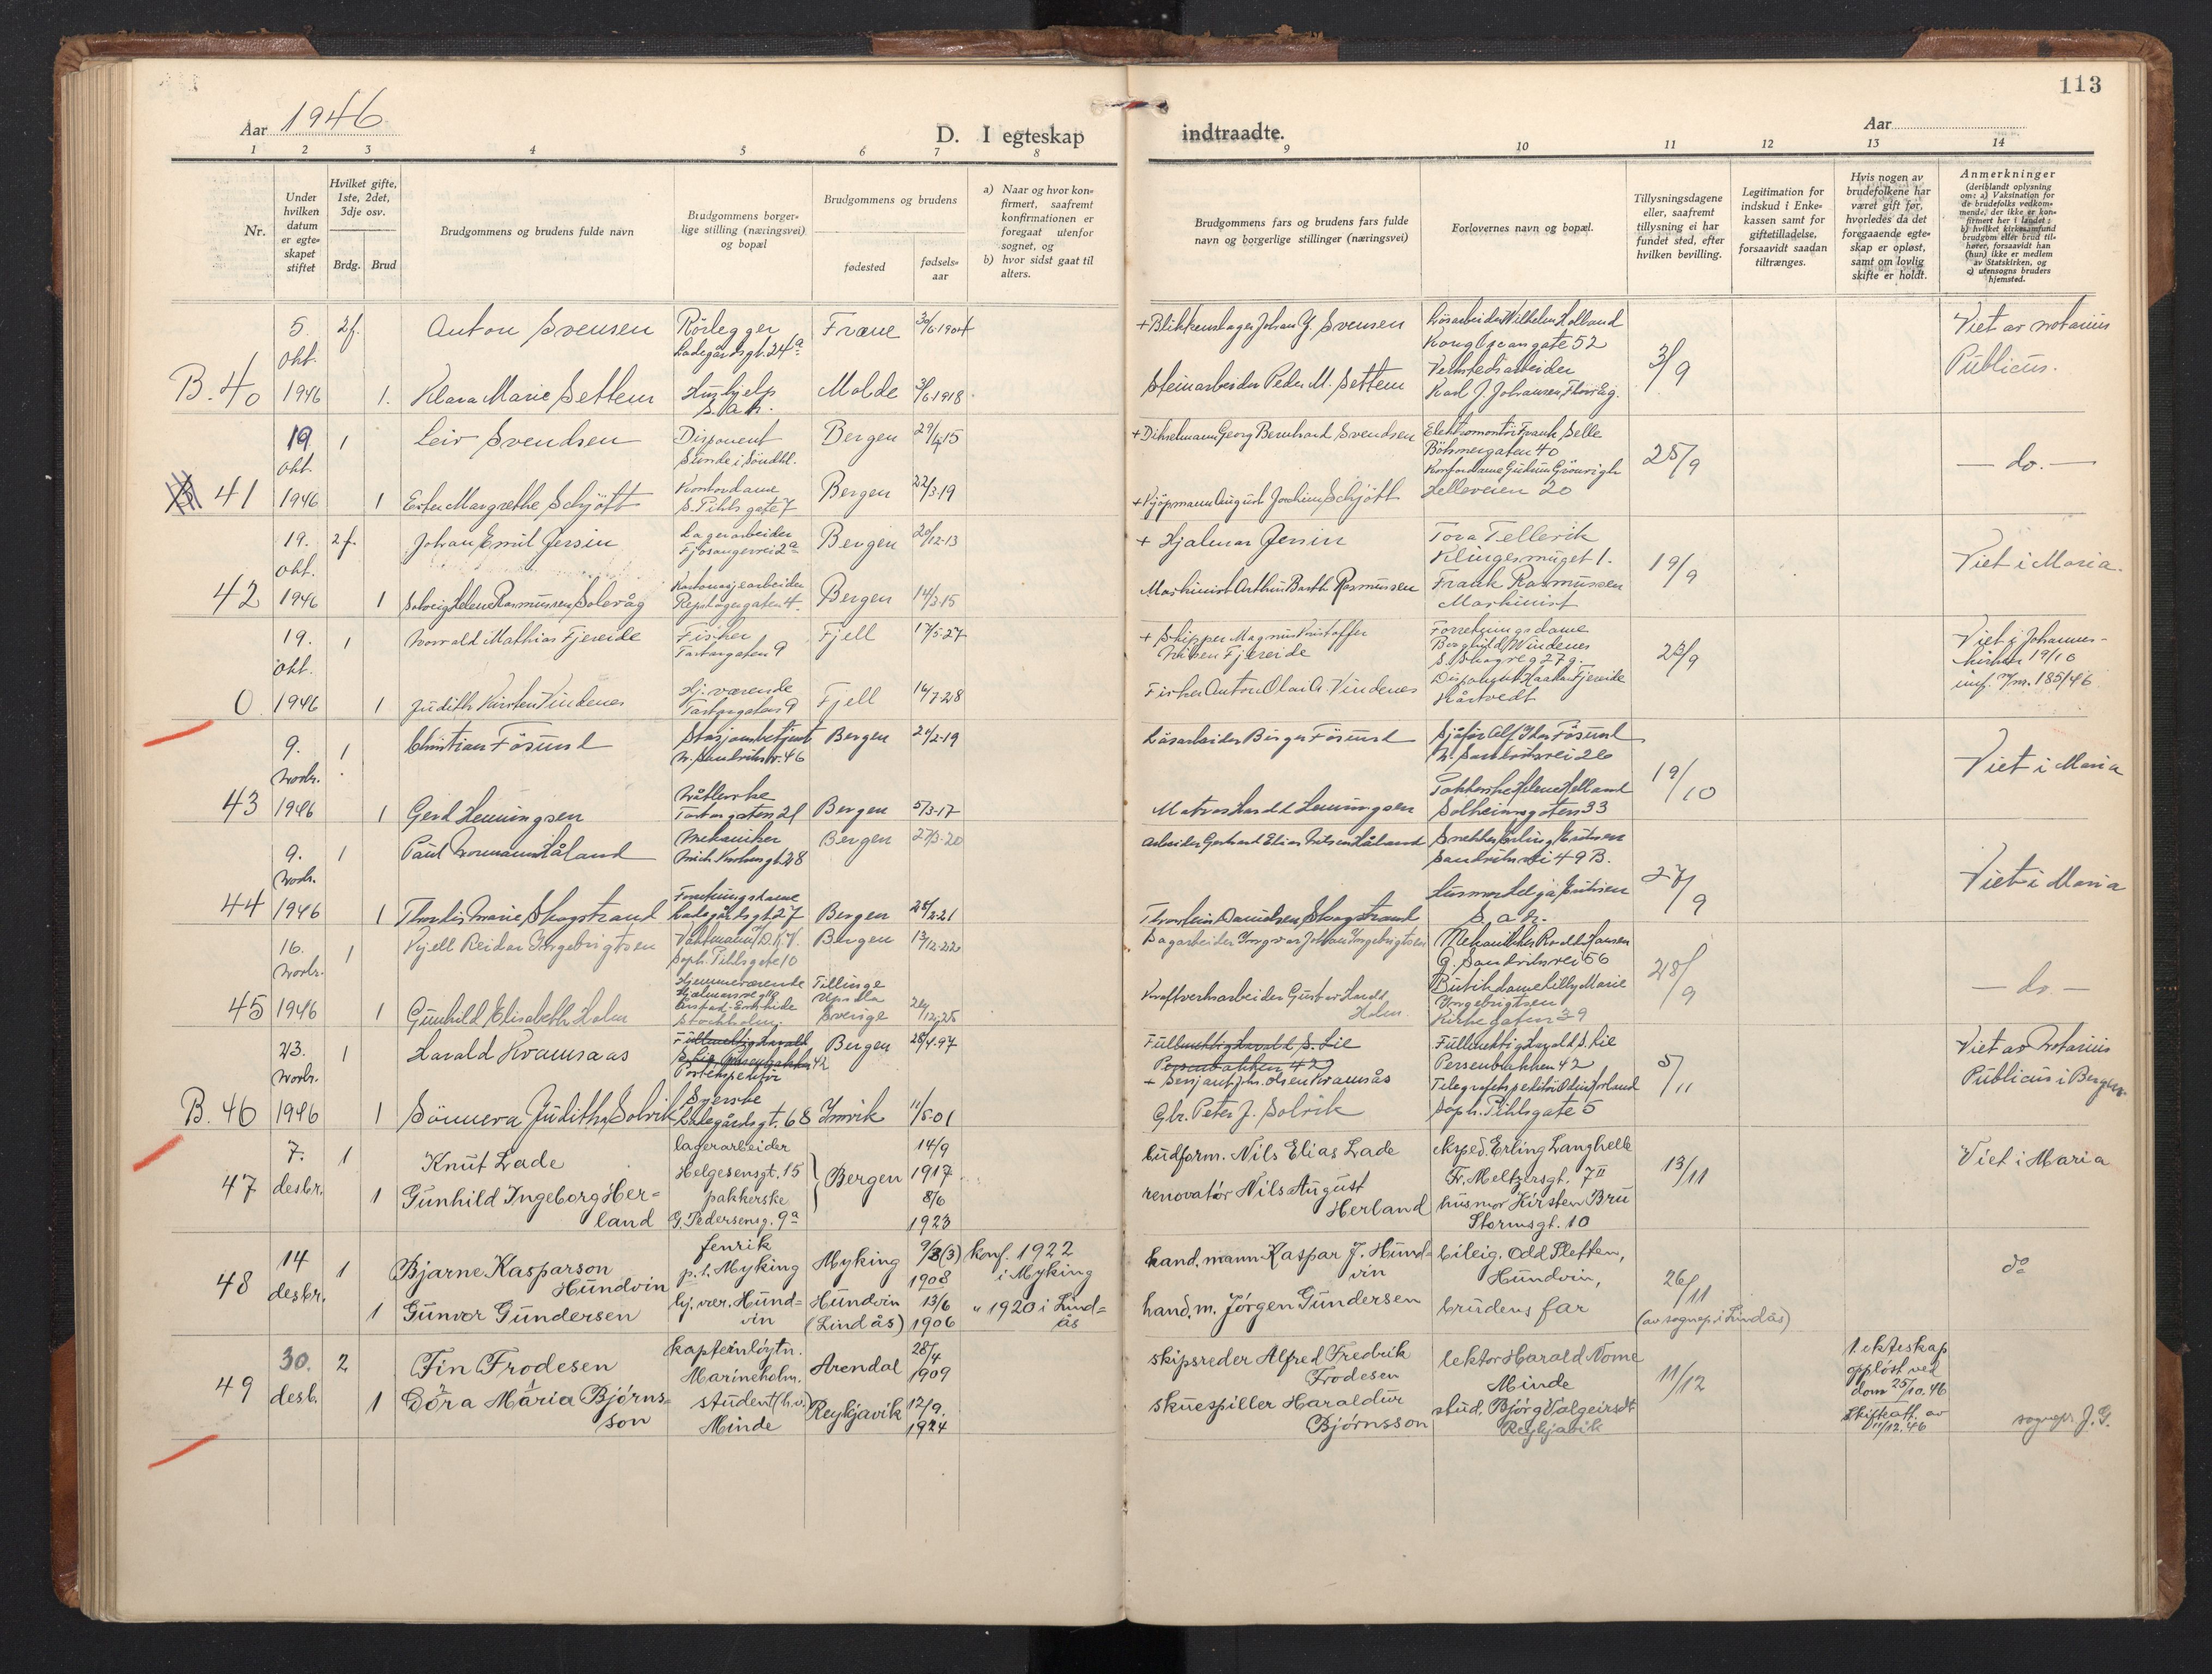 113
Aar 1946
D. I egteskap indtraadte.
Aar
1 2 3 4 5 6 7 8 9 10 11 12 13 14
Nr.
Under hvilken datum er egteskapet stiftet
Hvilket gifte, 1ste, 2det, 3dje osv.
Brdg. Brud
Brudgommens og brudens fulde navn
Brudgommens borgerlige stilling (næringsvei) og bopæl
Brudgommens og brudens
fødested
fødselsaar
a) Naar og hvor konfirmert, saafremt konfirmationen er foregaat utenfor sognet, og
b) hvor sidst gaat til alters.
Brudgommens fars og brudens fars fulde navn og borgerlige stillinger (næringsvei)
Forlovernes navn og bopæl.
Tillysningsdagene eller, saafremt tillysning ei har fundet sted, efter hvilken bevilling.
Legitimation for indskud i Enkekassen samt for giftetilladelse, forsaavidt saadan tiltrænges.
Hvis nogen av brudefolkene har været gift før, hvorledes da det foregaaende egteskap er opløst, samt om lovlig skifte er holdt.
Anmerkninger
(deriblandt oplysning om: a) Vaksination for de brudefolks vedkommende, der ikke er konfirmert her i landet; b) hvilket kirkesamfund brudgom eller brud tilhører, forsaavidt han (hun) ikke er medlem av Statskirken, og c) utensogns bruders hjemsted.
5. 2f. Anton Svensen Rörlegger Fræne 30/6.1904 + Blikkenslager Johan Y. Svensen Lösarbeider Wilhelm Holland Viet av notarius
Okt. Ladegårdsgt. 24a Kong Oscarsgate 52 3/9 Publicus.
B. 40 1946 1. Klara Marie Settem Hushjelp Molde 3/6.1918. Steinarbeider Peder M. Settem Verkstedsarbeider
S. a. h. Karl J. Johansen, Florvåg.
19 1 Leiv Svendsen Disponent Bergen 29/4.15 + Georg Bernhard Svendsen Elektromontör Frank Selle
Okt. Sunde i Söndhl. Böhmergaten 40 25/9 — do. —
41 1946 1 Ester Margrethe Schjött Kontordame Bergen 22/3.19 + Kjöpmann August Joachim Schjött Kontordame Gudrun
S. Pihls gate 7 Helleveien 20
19. 2f. Johan Emil Jersin Lagerarbeider Bergen 20/12.13 + Hjalmar Jersin Tora Tellevik
Okt. Fjösangervei 2a Klingesmuget 1. 19/9 Viet i Maria.
42 1946 1 Solveig Helene Rasmussen Solevåg Kartonasjearbeider Bergen 14/3.15 Maskinist Arthur Barth Rasmussen Frank Rasmussen
Repslagergaten 4. Maskinist
19. 1 Norvald Mathias Fjereide Fisker Fjell 17/5.27 + Skipper Magnus Kristoffer Forretningsdame Viet i Johannes-
Okt. Tartargaten 9 Nilsen Fjereide Borghild Vindenes 23/9 kirken 19/10
0. 1946 1 Judith Kirsten Vindenes Hj. værende Fjell 16/7.28 Fisker Anton Olai A. Vindenes Disponent Haakon Fjereide
Tartargaten 9 Kårtvedt inf. 185/46
9. 1 Christian Fösund Stasjonsbetjent Bergen 21/2.19 Lösarbeider Birger Fösund Sjåför Alf Fösund
Novbr. 46 19/10 Viet i Maria
43 1946 1 Gerd Henningsen Bergen 5/3.17 Matros Harald Henningsen Pakkerske Helene Helland
Tartargaten 21 Solheimsgaten 33
9. 1 Paul Normann Håland Mekaniker Bergen 27/3.20 Arbeider Gerhard Elias Nilsen Håland Snekker Erling Eriksen
Novbr. 28 49 B. 27/9 Viet i Maria
44 1946 1 Thordis Marie Skogstrand Forretningsdame Bergen 1921 Thorstein Danielsen Skogstrand Husmor Helga Eriksen
Ladegårdsgt. 27 S. a. h.
16. 1 Kjell Reidar Ingebrigtsen Vaktmann Bergen 13/12.22 Sagarbeider Ingvar Johan Ingebrigtsen Mekaniker Hansen
Novbr. Soph. Pihlsgate 10 56 28/9 — do —
45 1946 1 Gunhild Elisabeth Holm Hjemmeværende Tillinge Kraftverksarbeider Gustav Harald Holm. Butikdame Lilly Marie
Stockholm. Upsala Sverige 12.25 Ingebrigtsen
Kirkegaten 39
23. 1 Harald Kvamsaas Fullmektig Harald Bergen 28/4.97 Fullmektig Harald S. Lie Fullmektig Harald S. Lie Viet av Notarius
Novbr. S. Lie, Persenbakken 42 Persenbakken 42 Persenbakken 42 5/11 Publicus i Bergen.
Postekspeditör + Sersjant Joh. Olsen Kvamsås Telegrafekspeditör
B. 46 1946 1 Sönneva Judithy Solvik Syerske Innvik 11/5.01 Gbr. Peter J. Solvik Soph. Pihlsgate 5
Ladegårdsgt. 68
7. 1 Knut Lade lagerarbeider 14/9 budform. Nils Elias Lade eksped. Erling Langhelle Viet i Maria
47 desbr. Helgesensgt. 15 Bergen 1917 Fr. Meltzersgt. 7II 13/11
1 Gunhild Ingeborg Her= pakkerske 8/6 renovatör Nils August husmor Kirsten Bru
land G. Pedersensg. 9a 1923 Herland Stormsgt. 10
14 1 Bjarne Kasparson fenrik Myking 9/3(3) konf. 1922 hand. mann Kaspar J. Hund= bileig. Odd Pletten,
48 desbr. Hundvin p.t. Myking 1908 i Myking vin Hundvin, 26/11 do
1 Gunvor Gundersen hj. vær. Hund= Hundvin 13/6 " 1920 i Lind= hand. m. Jörgen Gundersen brudens far (av sognepr. i Lindås)
vin (Lindås) 1906 ås
30. 2 Fin Frodesen kapteinløytn. 28/4 skipsreder Alfred Fredrik lektor Harald Nome 1. ekteskap
49 desb. Marineholm. Arendal 1909 Frodesen Minde 11/12 oppløst ved
1 Dóra Mária Bjørns= student (h.v.) Reykjavik 12/9. skuespiller Haraldur stud. Bjørg Valgeirsdt. dom 25/10.46
son Minde 1924 Bjørnsson Reykjavik Skifteatt. av 11/12.46 sognepr. J. G.